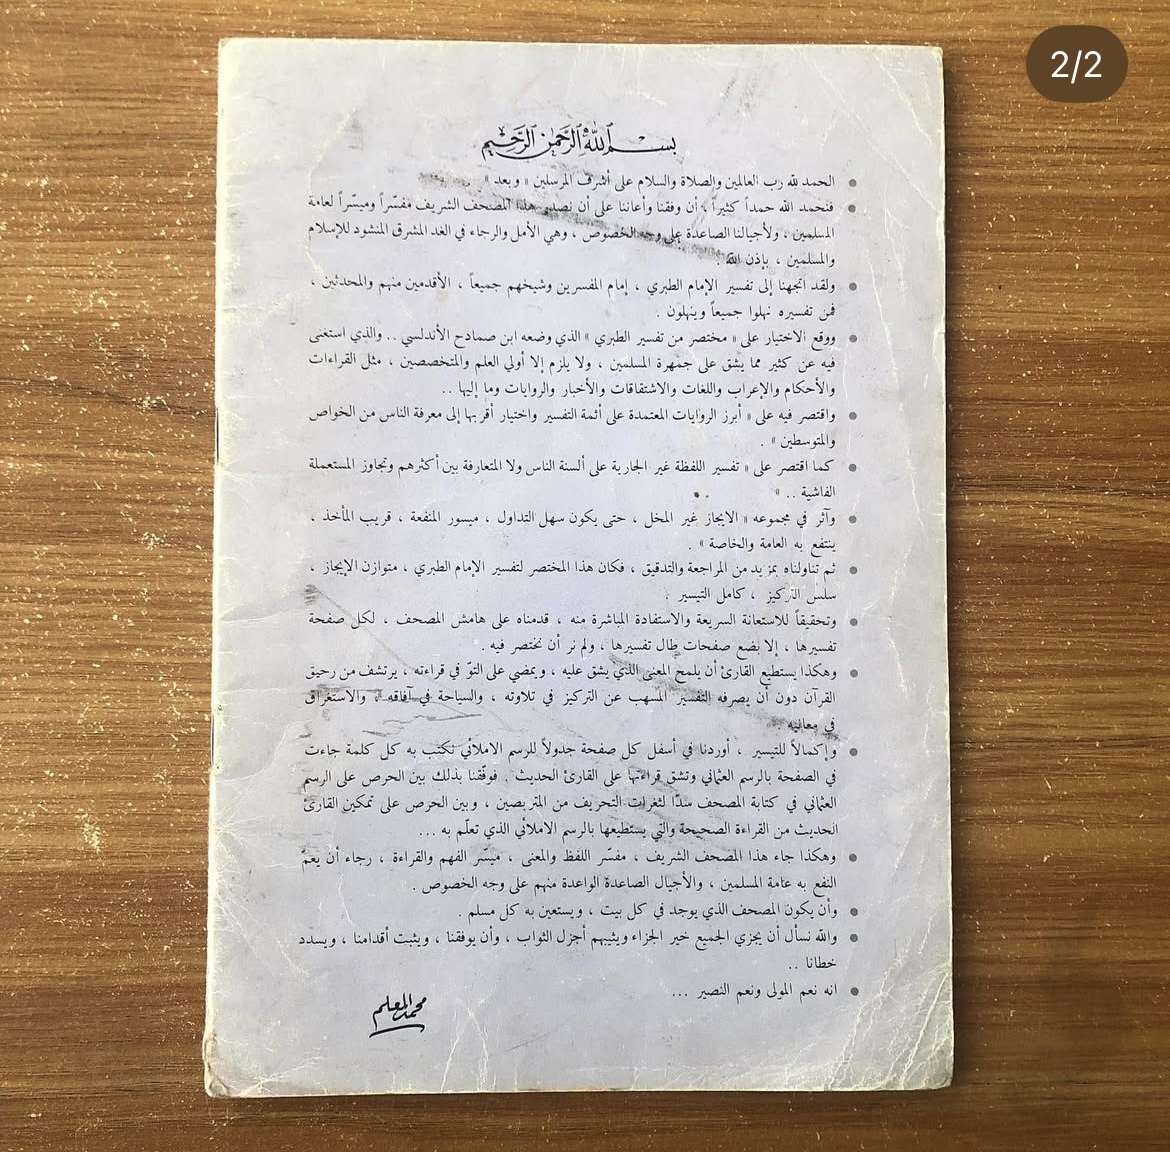 2/2
بسم الله الرحمن الرحيم
● الحمد لله رب العالمين والصلاة والسلام على أشرف المرسلين « وبعد »
● فنحمد الله حمداً كثيراً ، أن وفقنا وأعاننا على أن نصدر هذا المصحف الشريف مفسّراً وميسّراً لعامة
المسلمين ، ولأجيالنا الصاعدة على وجه الخصوص ، وهي الأمل والرجاء في الغد المشرق المنشود للإسلام
والمسلمين ، بإذن الله .
● ولقد اتجهنا إلى تفسير الإمام الطبري ، إمام المفسرين وشيخهم جميعاً ، الأقدمين منهم والمحدثين ،
فمن تفسيره نهلوا جميعاً وينهلون .
● ووقع الاختيار على « مختصر من تفسير الطبري » الذي وضعه ابن صمادح الأندلسي .. والذي استغنى
فيه عن كثير مما يشق على جمهرة المسلمين ، ولا يلزم إلا أولي العلم والمتخصصين ، مثل القراءات
والأحكام والإعراب واللغات والاشتقاقات والأخبار والروايات وما إليها ..
● واقتصر فيه على « أبرز الروايات المعتمدة على أئمة التفسير واختيار أقربها إلى معرفة الناس من الخواص
والمتوسطين » .
● كما اقتصر على « تفسير اللفظة غير الجارية على ألسنة الناس ولا المتعارفة بين أكثرهم وتجاوز المستعملة
الفاشية .. »
● وآثر في مجموعه « الايجاز غير المخل ، حتى يكون سهل التداول ، ميسور المنفعة ، قريب المأخذ ،
ينتفع به العامة والخاصة » .
● ثم تناولناه بمزيد من المراجعة والتدقيق ، فكان هذا المختصر لتفسير الإمام الطبري ، متوازن الإيجاز ،
سلس التركيز ، كامل التيسير .
● وتحقيقاً للاستعانة السريعة والاستفادة المباشرة منه ، قدمناه على هامش المصحف ، لكل صفحة
تفسيرها ، إلا بضع صفحات طال تفسيرها ، ولم نر أن نختصر فيه .
● وهكذا يستطيع القارئ أن يلمح المعنى الذي يشق عليه ، ويمضي على التوّ في قراءته ، يرتشف من رحيق
القرآن دون أن يصرفه التفسير المسهب عن التركيز في تلاوته ، والسياحة في آفاقه ، والاستغراق
في معانيه ...
● وإكمالاً للتيسير ، أوردنا في أسفل كل صفحة جدولاً للرسم الاملائي نكتب به كل كلمة جاءت
في الصفحة بالرسم العثماني وتشق قراءتها على القارئ الحديث . فوفّقنا بذلك بين الحرص على الرسم
العثماني في كتابة المصحف سدّا لثغرات التحريف من المتربصين ، وبين الحرص على تمكين القارئ
الحديث من القراءة الصحيحة والتي يستطيعها بالرسم الاملائي الذي تعلّم به ...
● وهكذا جاء هذا المصحف الشريف ، مفسّر اللفظ والمعنى ، ميسّر الفهم والقراءة ، رجاء أن يعمّ
النفع به عامة المسلمين ، والأجيال الصاعدة الواعدة منهم على وجه الخصوص .
● وأن يكون المصحف الذي يوجد في كل بيت ، ويستعين به كل مسلم .
● والله نسأل أن يجزي الجميع خير الجزاء ويثيبهم أجزل الثواب ، وأن يوفقنا ، ويثبت أقدامنا ، ويسدد
خطانا ..
● انه نعم المولى ونعم النصير ...
محمد المعلم